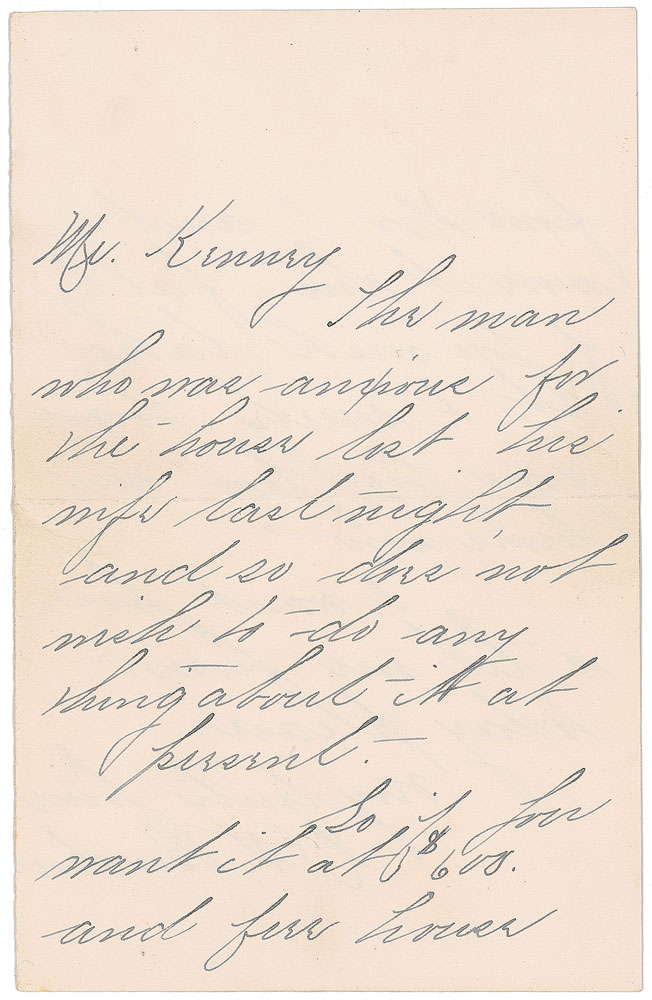 Mr. Kenney
The man
who was anxious for
the house lost his
wife last night
and so does not
wish to do any
thing about it at
present.
So if you
want it at $600.
and free house